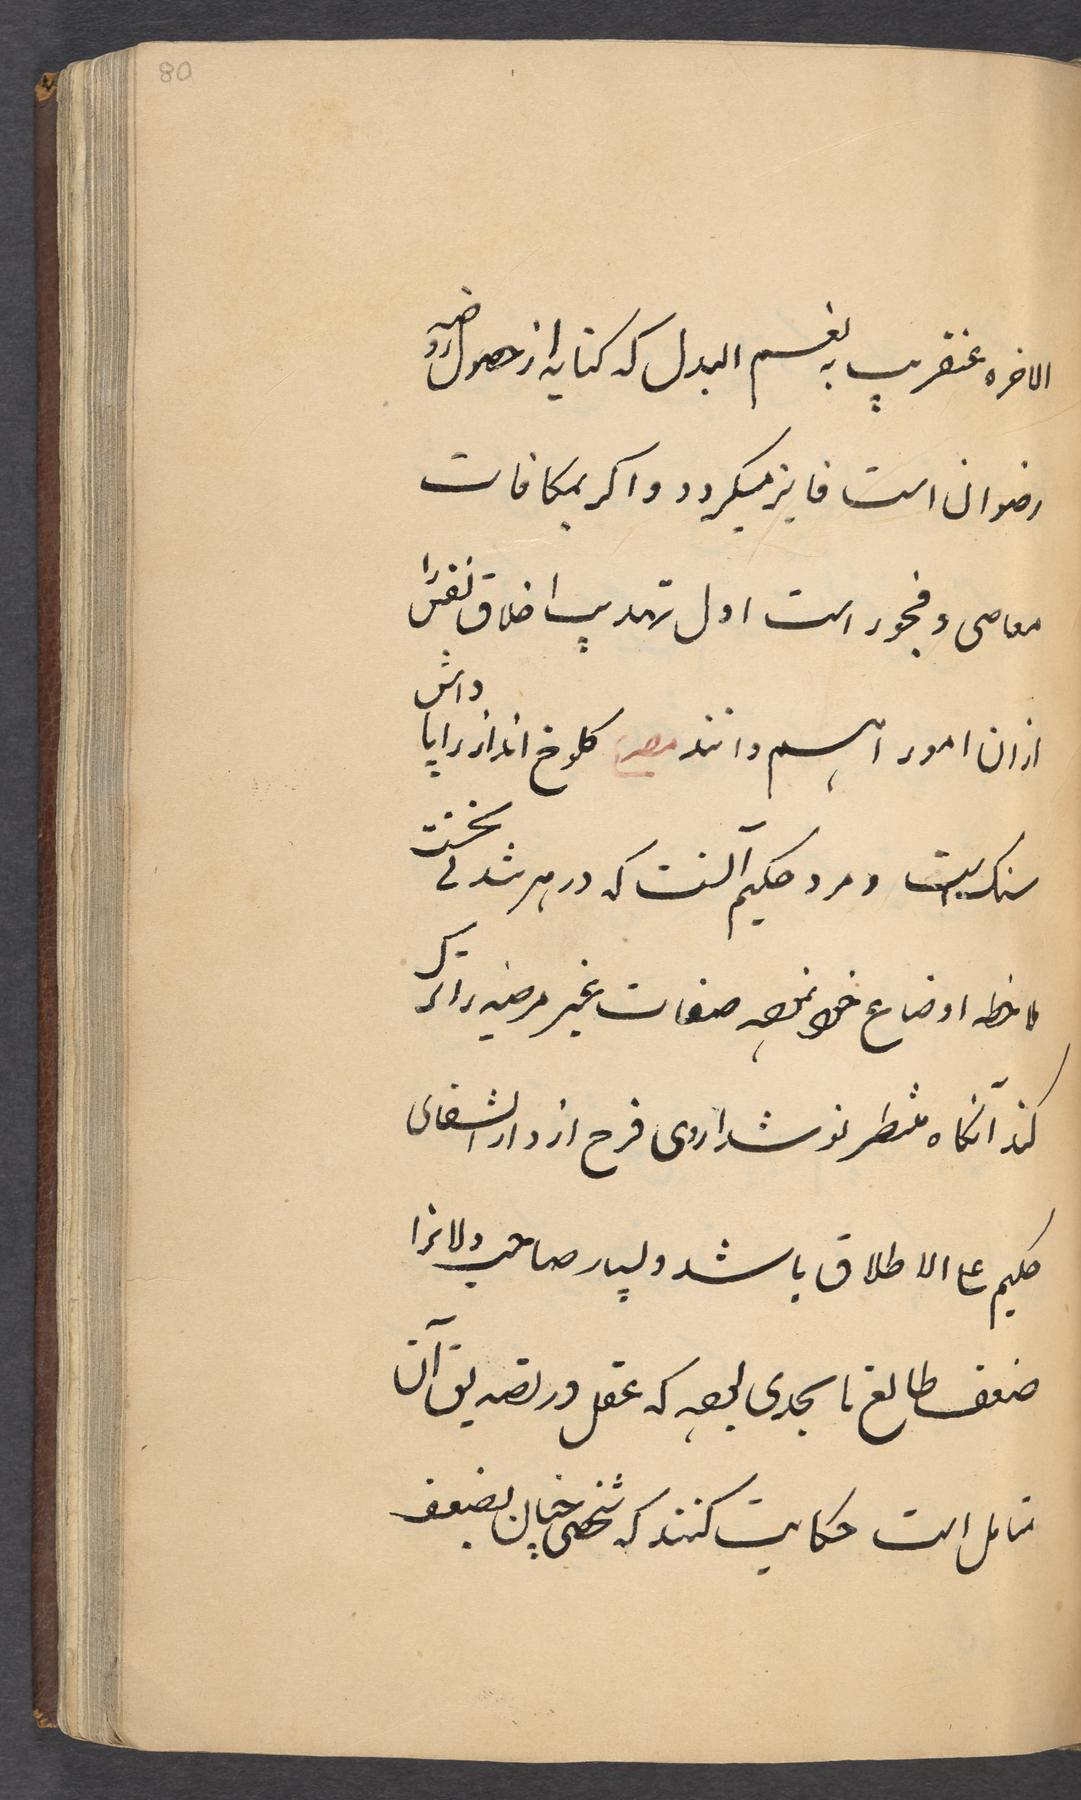 80
الاخره عنقریب به نعم البدل که کنایه از حصول روضه
رضوان است فایز میکردد و اکر بمکافات
معاصی و فجور است اول تهذیب اخلاق نفس را
ازان امور اهم دانند مصرع کلوخ انداز را پاداش
سنک است و مرد حکیم آنست که در هر شدتی نخست
ملاحظه اوضاع خود نموده صفات غیر مرضیه را ترک
کند آنکاه منتظر نوشداروی فرح از دار الشفای
حکیم علی الاطلاق باشد و بسیار صاحب دلانرا
ضعف طالع تا بحدی بوده که عقل در تصدیق آن
متامل است حکایت کنند که شخصی چنان بضعف